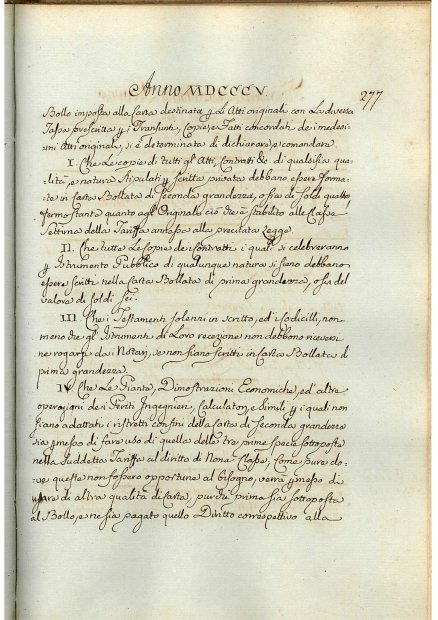 Anno MDCCCV.
277
Bollo imposta alla Carta destinata p. gli Atti originali con la diversa
Tassa prescritta p. i Transunti, Copie, e Fatti concordati de i medesi-
mi Atti originali, si è determinata di dichiarare, e comandare.
I. Che le copie di tutti gl'Atti, Contratti &c di qualsisia qua-
lità, e natura Stipulati p. scritta privata debbano essere forma-
te in Carta Bollata di seconda grandezza, ossia di Soldi quattro
fermo stante quanto agl'Originali ciò che è stabilito alle Classe
Settima della Tariffa annessa alla precitata Legge.
II. Che tutte le Copie dei Contratti i quali si celebreranno
p. Istrumento Pubblico di qualunque natura si sieno debbano
essere scritti nella Carta Bollata di prima grandezza, ossia del
valore di Soldi Sei.
III. Che i Testamenti solenni in scritto, ed i Codicilli, non
meno che gl'Istrumenti di Loro recezione non debbono riceversi
ne rogarsi da i Notari, se non siano scritti in Carta Bollata di
prima grandezza.
IV. Che Le Piante, Dimostrazioni Economiche, ed altre
operazioni de i Periti Ingegneri, Calculatori, e Simili p. i quali non
siano adattati i ristretti confini della Carta di Seconda grandezza
sia p.messo di fare uso di quella delle tre prime specie sottoposte
nella suddetta Tariffa al diritto di Nona Classe, Come pure do-
ve queste non fossero opportune al bisogno, verrà p.messo di
usare di altra qualità di Carta, purchè prima sia sottoposta
al Bollo, e ne sia pagato quello Diritto correspettivo alla